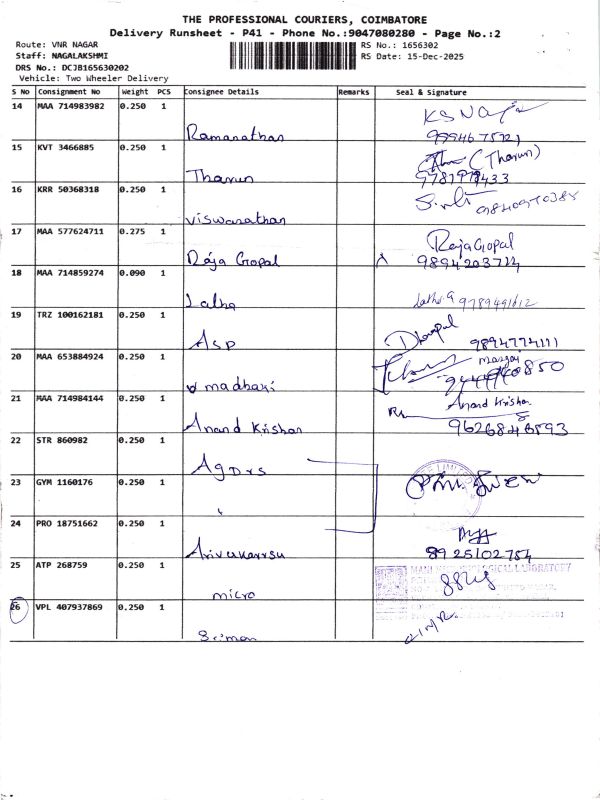 THE PROFESSIONAL COURIERS, COIMBATORE
Delivery Runsheet - P41 - Phone No.:9047080280 - Page No.:2
Route: VNR NAGAR
Staff: NAGALAKSHMI
DRS No.: DCJB165630202
Vehicle: Two Wheeler Delivery
RS No.: 1656302
RS Date: 15-Dec-2025
S No Consignment No Weight PCS Consignee Details Remarks Seal & Signature
14 MAA 714983982 0.250 1
Ramanathan
15 KVT 3466885 0.250 1
Tharun (Tharun)
16 KRR 50368318 0.250 1
Viswanathan
17 MAA 577624711 0.275 1 RajaGopal
Raja Gopal 9894203714
18 MAA 714859274 0.090 1
Latha 9789491612
19 TRZ 100162181 0.250 1
ASP 9894774111
20 MAA 653884924 0.250 1
madhavi
21 MAA 714984144 0.250 1 Anand Krishan
Anand Krishan 9626846593
22 STR 860982 0.250 1
AgDrs
23 GYM 1160176 0.250 1
24 PRO 18751662 0.250 1
Arivukarrsu 8925102754
25 ATP 268759 0.250 1
micro
26 VPL 407937869 0.250 1
Sriman